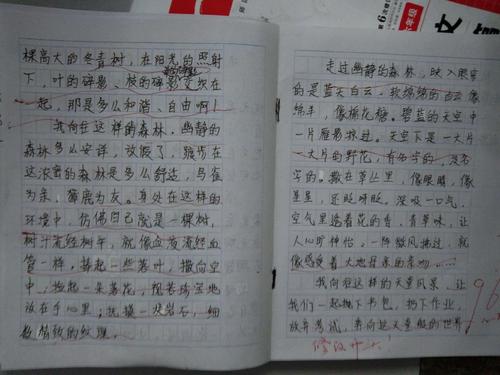 棵高大的冬青树，在阳光的照射
下，叶的碎影、枝的碎影交织在
一起，那是多么和谐、自由啊！
我向往这样的森林，幽静的
森林多么安详，放眼了，躺在
这浓密的森林是多么舒适，与雀
为亲，与鹿为友。身处在这样的
环境中，仿佛自己就是一棵树，
树汁流经树干，就像血液流经血
管一样，捧起一些落叶，撒向空
中，拾起一朵落花，视若珍宝地
放在手心里；抚摸一块岩石，细
数精致的纹理。
走过幽静的森林，映入眼帘
的是蓝天白云，软绵绵的白云像
绵羊，像棉花糖。碧蓝的天空中
一片雁影掠过。天空下是一大片
一大片的野花，有名字的，没名
字的，散在草丛里，像眼睛，像
星星，还眨呀眨。深吸一口气，
空气里透着花的香，青草味，让
人心旷神怡。一阵微风拂过，就
像感受着大地母亲的亲吻……
我向往这样的天堂风景，让
我们一起抛下书包，扔下作业，
放弃考试，奔向这天堂般的世界。
96
修改开头！
第6次修